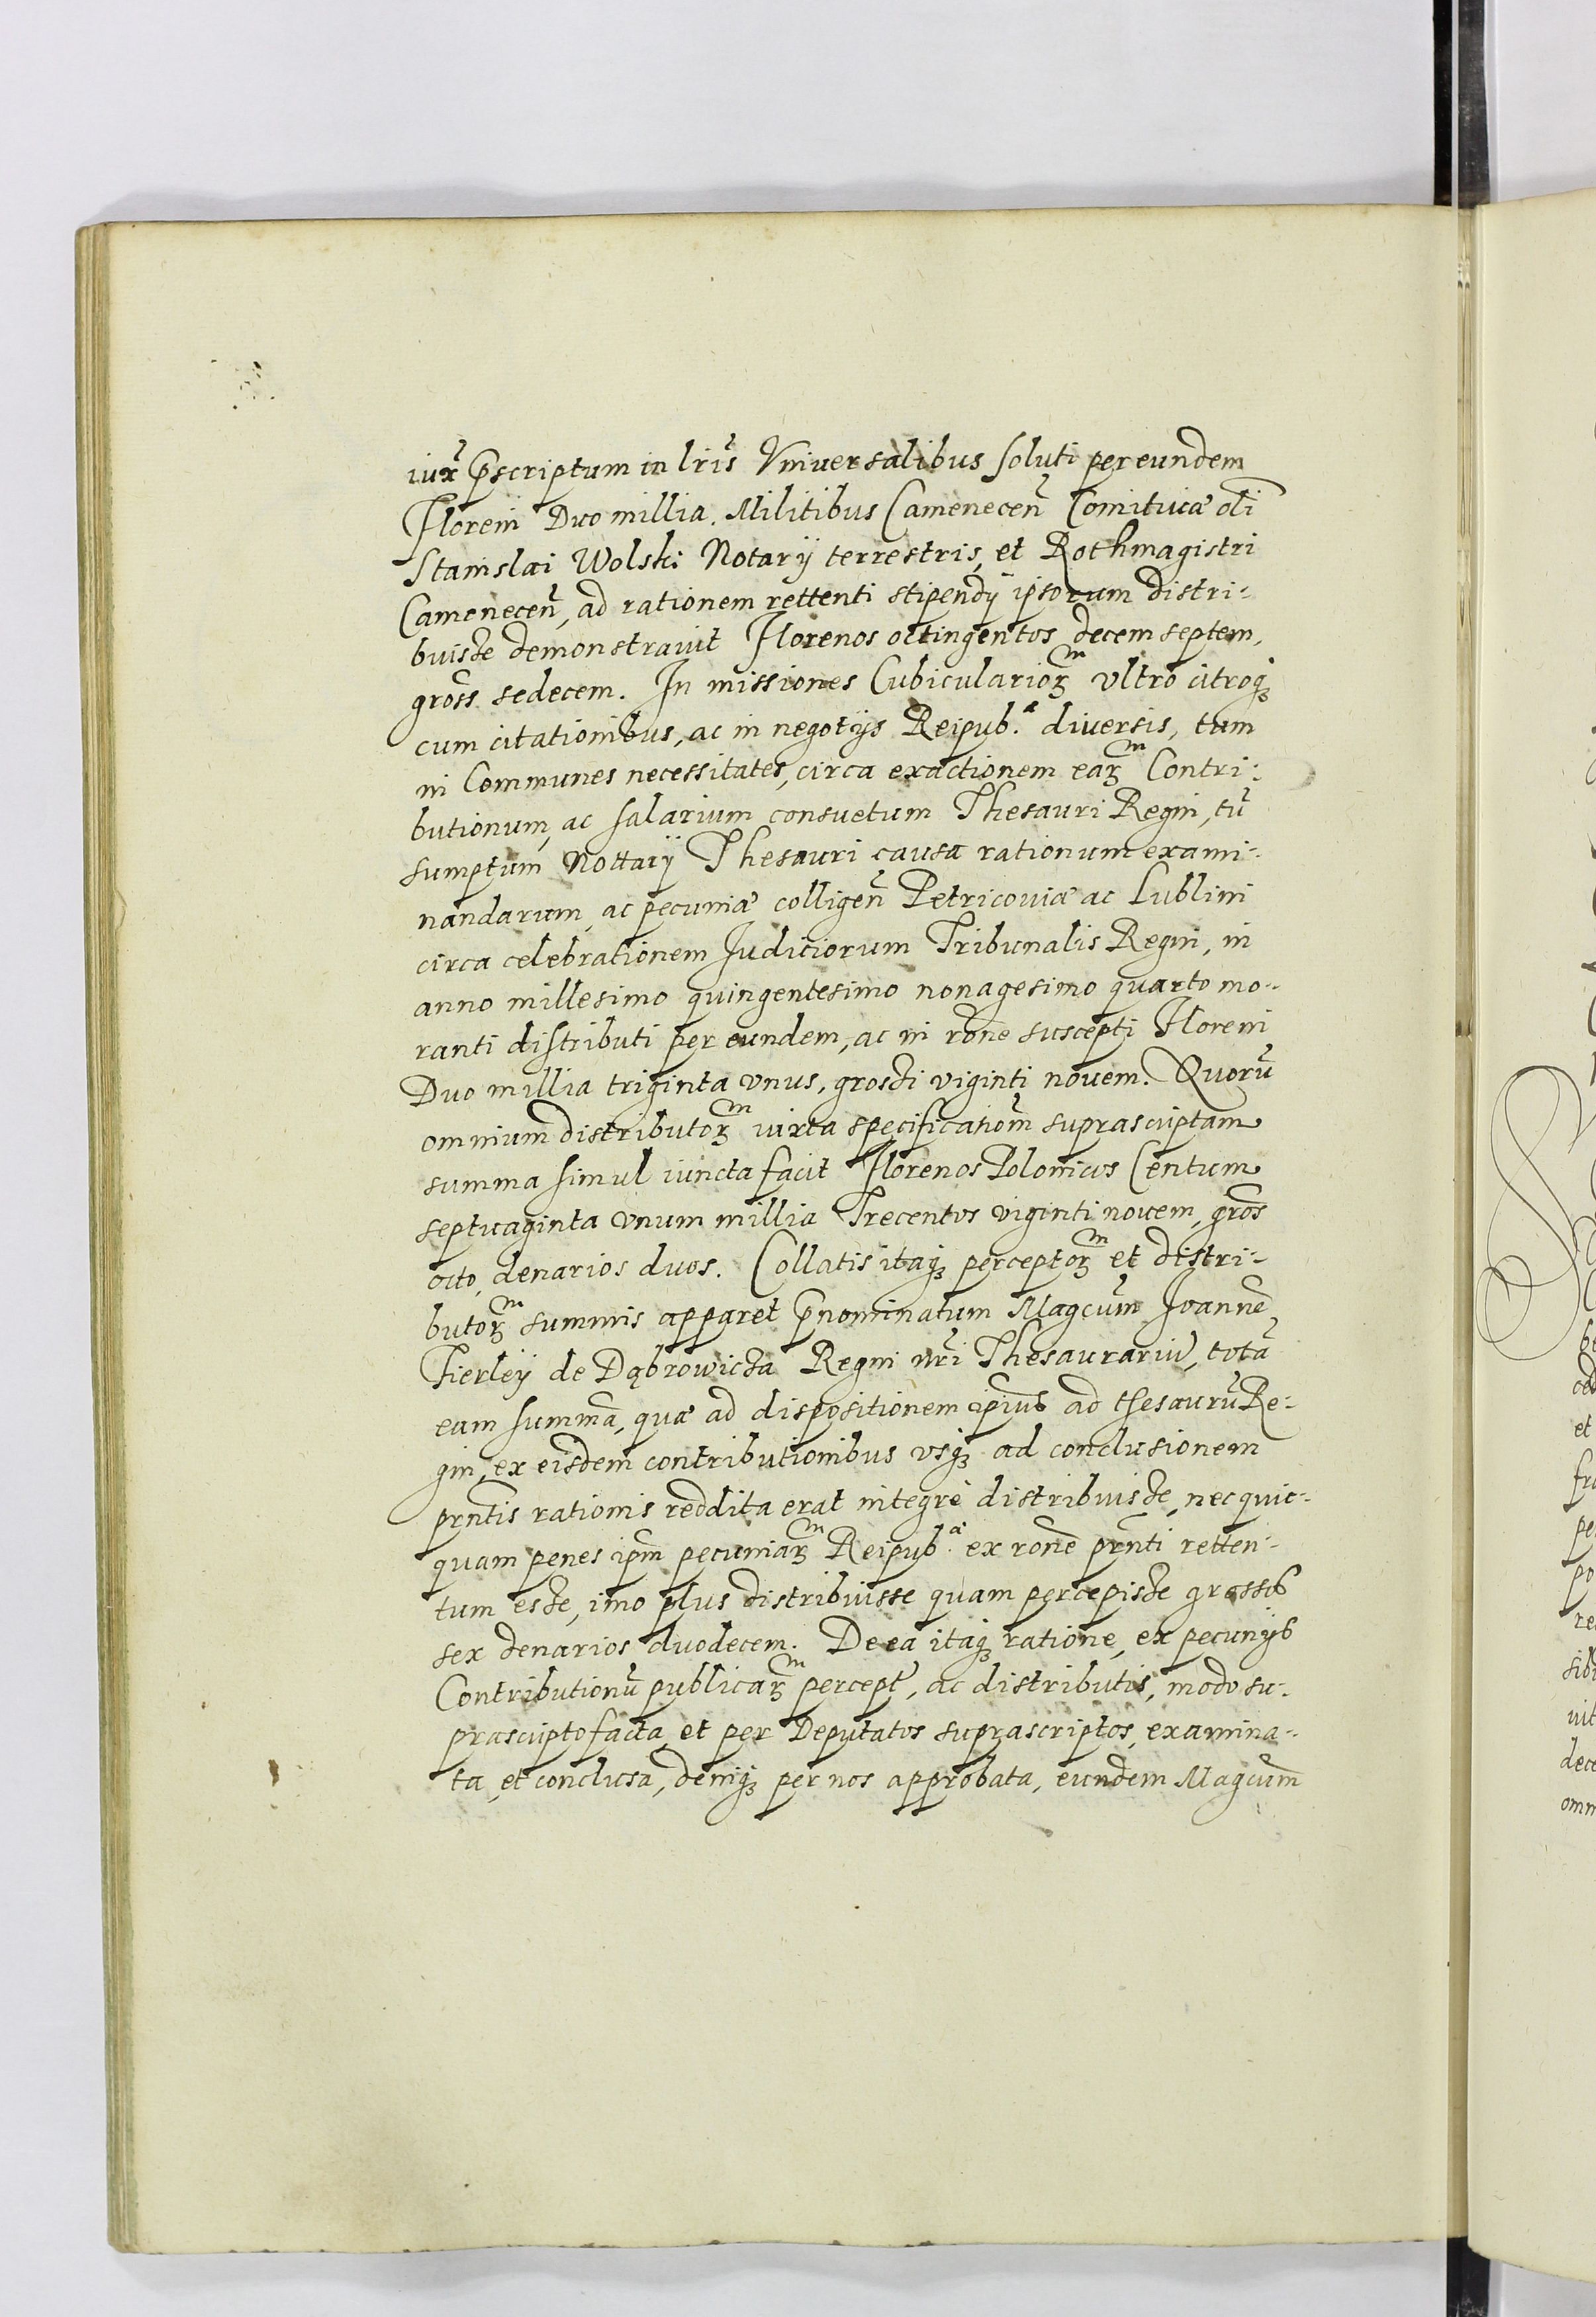 iux̃ p̃scriptum in lr̃is Vniuersalibus soluti per eundem
Floreni Duo millia. Militibus Camenecen̄ Comitiuæ oli̅
Stanislai Wolski Notarij terrestris, et Rothmagistri
Camenecen̄, ad rationem rettenti stipendij ipsorum distri-
buisse demonstrauit Florenos octingentos decem septem,
gross̄ sedecem. In missiones Cubicularioꝝᵐ vltro citroqꝫ
cum citationibus, ac in negotijs Reipub.ᵃ diuersis, tum
in Communes necessitates, circa exactionem eaꝝᵐ Contri-
butionum, ac salarium consuetum Thesauri Regni, tū
sumptum Nottarij Thesauri causa rationum exami-
nandarum, ac pecuniæ colligen̄ Petricouiæ ac Lublini
circa celebrationem Iudiciorum Tribunalis Regni, in
anno millesimo quingentesimo nonagesimo quarto mo-
ranti distributi per eundem, ac in rōne suscepti Floreni
Duo millia triginta vnus, grossi viginti nouem. Quorū
omnium distributoꝝᵐ iuxta specificatiom̄ suprascriptam
summa simul iuncta facit Florenos Polonicos Centum
septuaginta vnum millia Trecentos viginti nouem, gros̄
octo, denarios duos. Collatis itaqꝫ perceptoꝝᵐ et distri-
butoꝝᵐ summis apparet p̃nominatum Magcūm Joannē
Fierleÿ de Dąbrowicza Regni nr̃i Thesaurariū, totā
eam summā, quæ ad dispositionem ipiūs ad thesaurū Re-
gni, ex eisdem contributionibus vsqꝫ ad conclusionem
prn̄tis rationis reddita erat integrè distribuisse, nec quic-
quam penes ipm̄ pecuniaꝝᵐ Reipub.ᵃᵉ ex rone̅ prn̄ti retten-
tum esse, imo plus distribuisse quam percepisse grossos
sex denarios duodecem. De ea itaqꝫ ratione, ex pecunijs
Contributionū publicaꝝᵐ percept̄, ac distributis, modo su-
prascripto facta, et per Deputatos suprascriptos, examina-
ta, et conclusa, deniqꝫ per nos approbata, eundem Magcūm